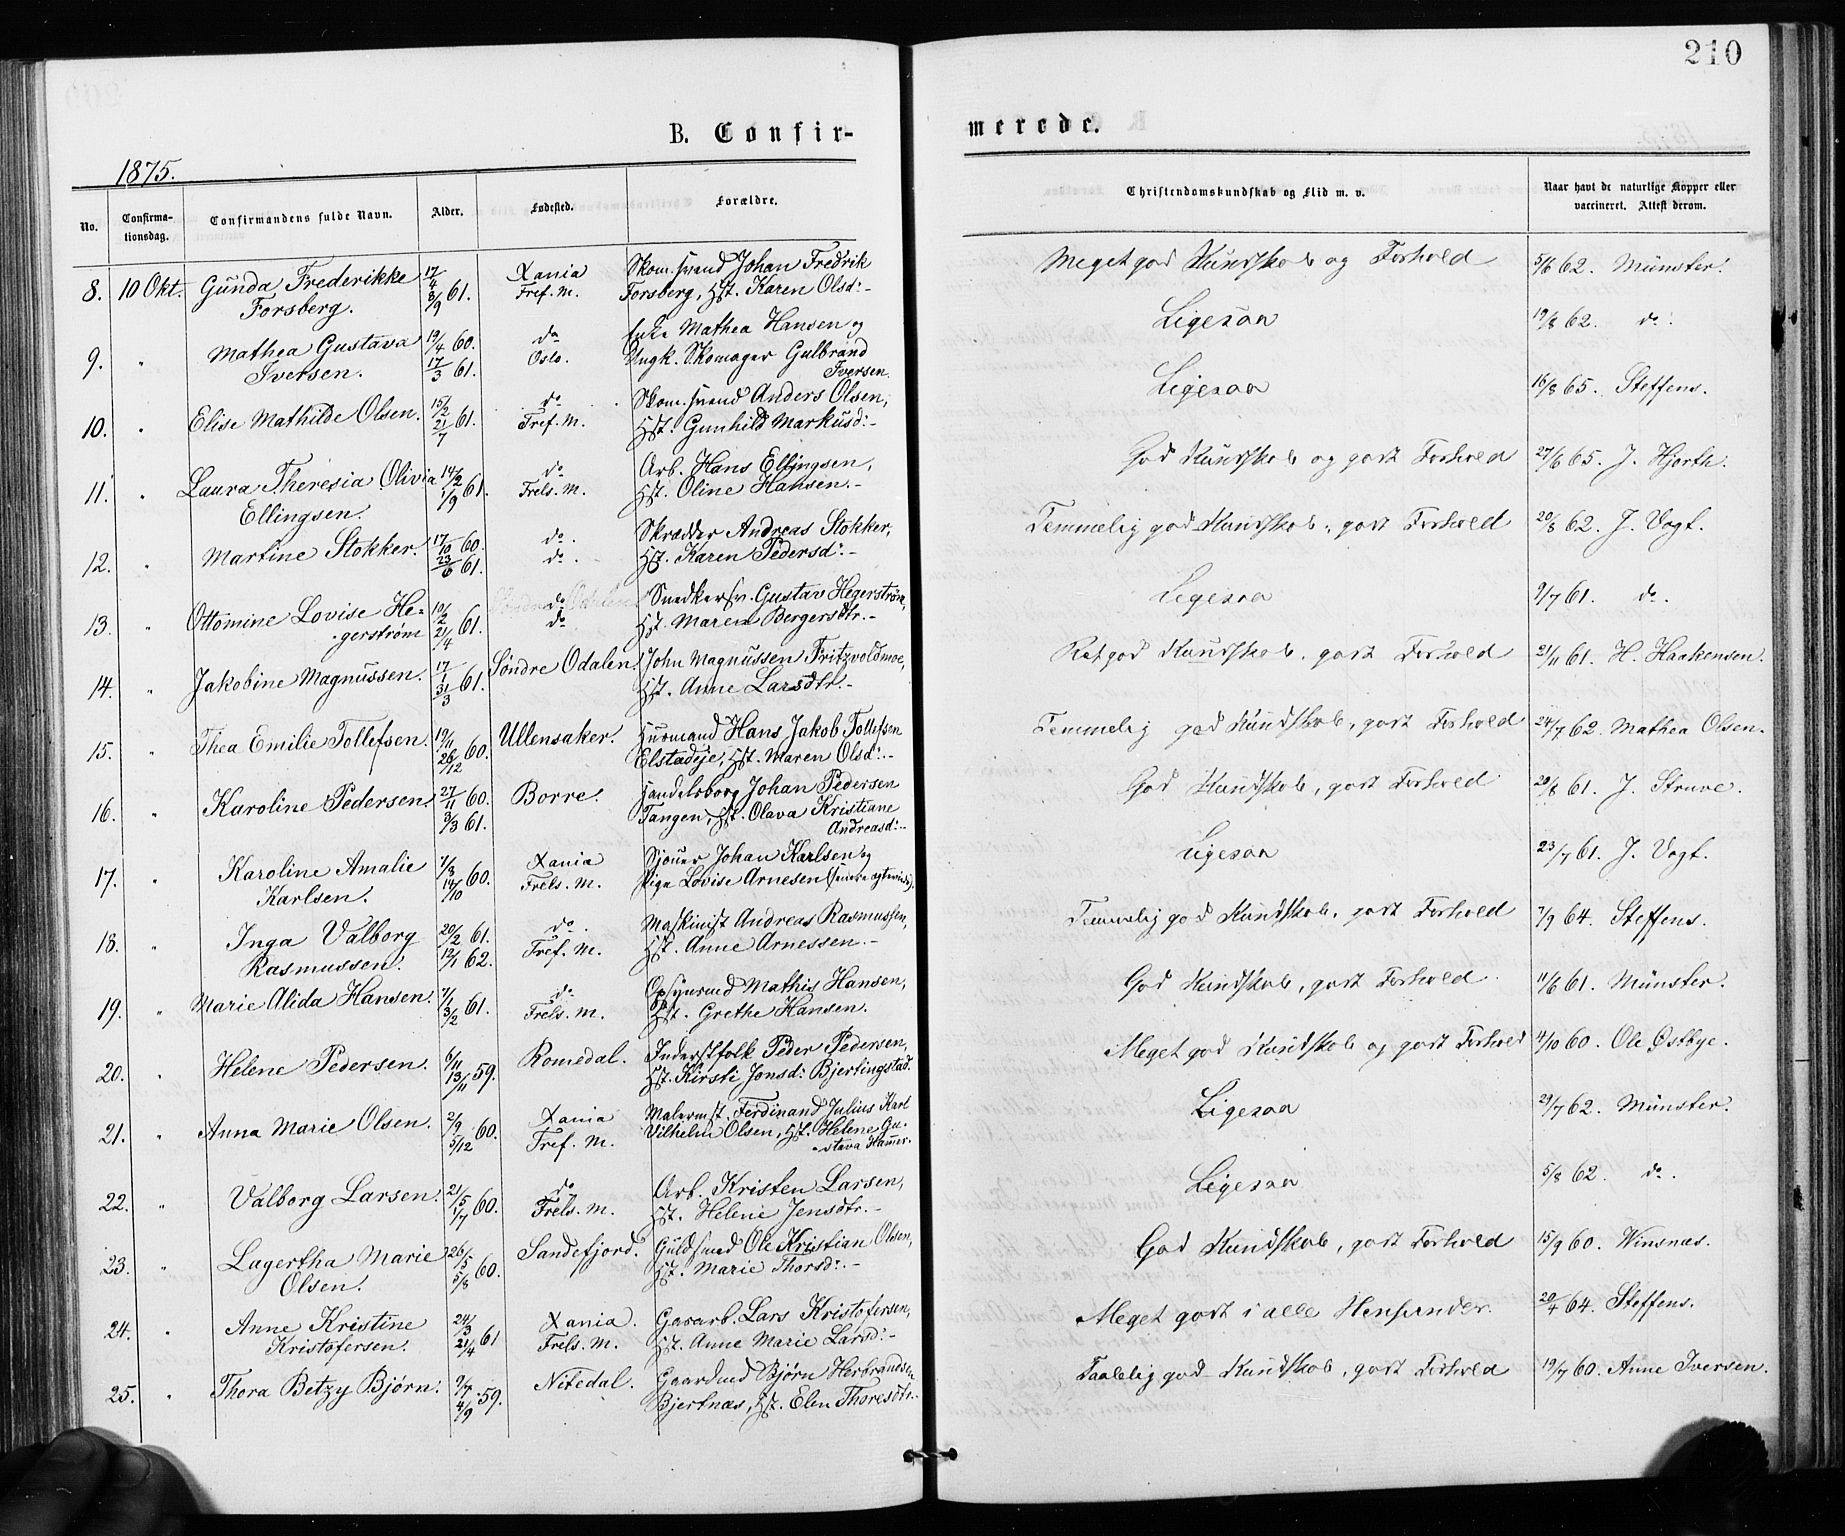 210
B. Confir-
merede.
1875.
No.
Confirma-
tionsdag.
Confirmandens fulde Navn.
Alder.
Fødested.
Forældre.
Christendomskundskab og Flid m. v.
Naar havt de naturlige Kopper eller
vaccineret. Attest derom.
8. 10 Okt. Gunda Frederikke 17/4 Xania Skom.svend Johan Fredrik Meget god Kundskab og Forhold 5/6 62. Münster.
Forsberg. 3/9 61. Tref. M. Forsberg, Hst. Karen Olsd:-
9. " Mathea Gustava 19/4 60. do Enke Mathea Hansen og Ligesaa 19/8 62. do.
Iversen. 17/3 61. Oslo. Ungk. Skomager Gulbrand
Iversen.
10. " Elise Mathilde Olsen. 15/2 61. do Skom.svend Anders Olsen, Ligesaa 16/8 65. Steffens.
21/7 Tref. M. Hst. Gunhild Markusd:-
11. " Laura Theresia Olivia 14/2 61. do Arb. Hans Ellingsen, God Kundskab og godt Forhold 27/6 65. J. Hjorth.
Ellingsen. 1/9 Frels. M. Hst. Oline Hansen.-
12. " Martine Stokker. 17/10 60. do. Skrædder Andreas Stokker, Temmelig god Kundskab, godt Forhold 20/8 62. J. Vogt.
23/6 61. do. Hst. Karen Pedersd:-
13. " Ottomine Lovise He- 10/2 61. do Snedkersv. Gustav Hegerstrøm, Ligesaa 9/7 61. do.
gerstrøm 21/4 do Hst. Maren Bergersdtr.-
14. " Jakobine Magnussen. 17/1 61. Søndre Odalen. John Magnussen Fritzvoldmoe, Ret god Kundskab, godt Forhold 21/11 61. H. Haakensen.
31/3 Hst. Anne Larsdtr.-
15. " Thea Emilie Tollefsen. 19/11 60. Ullensaker. Husmand Hans Jakob Tollefsen Temmelig god Kundskab, godt Forhold 24/7 62. Mathea Olsen.
26/12 Elstadeje, Hst. Maren Olsd:-
16. " Karoline Pedersen 27/11 60. Borre. Handelsborg Johan Pedersen God Kundskab, godt Forhold 20/8 61. J. Struve.
3/3 61. Tangen, Hst. Olava Kristiane
Andreasd:-
17. " Karoline Amalie 7/3 60. Xania Sjouer Johan Karlsen og Ligesaa 23/7 61. J. Vogt.
Karlsen. 14/10 Frels. M. Pige Lovise Arnesen
18. " Inga Valborg 20/2 61. do. Maskinist Andreas Rasmussen, Temmelig god Kundskab, godt Forhold 7/9 64. Steffens.
Rasmussen. 12/1 62. Tref. M. Hst. Anne Arnessen.-
19. " Marie Alida Hansen. 7/1 61. do Opsynsmd Mathis Hansen, God Kundskab, godt Forhold 11/6 61. Münster.
3/2 Frels. M. Hst. Grethe Hansen.
20. " Helene Pedersen. 6/11 59. Romedal. Inderstfolk Peder Pedersen, Meget god Kundskab og godt Forhold 14/10 60. Ole Østbye.
13/11 Hst. Kirsti Jonsd: Bjertingstad.
21. " Anna Marie Olsen. 2/9 60. Xania Malermst. Ferdinand Julius Karl Ligesaa 29/7 62. Münster.
5/12 Tref. M. Vilhelm Olsen, Hst. Helene Gu-
stava Hamer.
22. " Valborg Larsen. 21/5 60. do Arb. Kristen Larsen, Ligesaa 5/8 62. do.
1/7 Frels. M. Hst. Helene Jensdtr.-
23. " Lagertha Marie 26/5 60. Sandefjord. Guldsmed Ole Kristian Olsen, God Kundskab, godt Forhold 15/9 60. Winsnæs.
Olsen. 5/8 Hst. Marie Thorsd:-
24. " Anne Kristine 24/3 61 Xania. Gasarb. Lars Kristofersen, Meget godt i alle Henseender. 20/4 64. Steffens.
Kristofersen. 21/4 Frels. M. Hst. Anne Marie Larsd:-
25. " Thora Betzy Bjørn. 9/7 59. Nitedal. Gaardmd Bjørn Herbrandsen Taalelig god Kundskab, godt Forhold 19/7 60. Anne Iversen.
4/9 Bjertnæs, Hst. Elen Thoresdtr.-